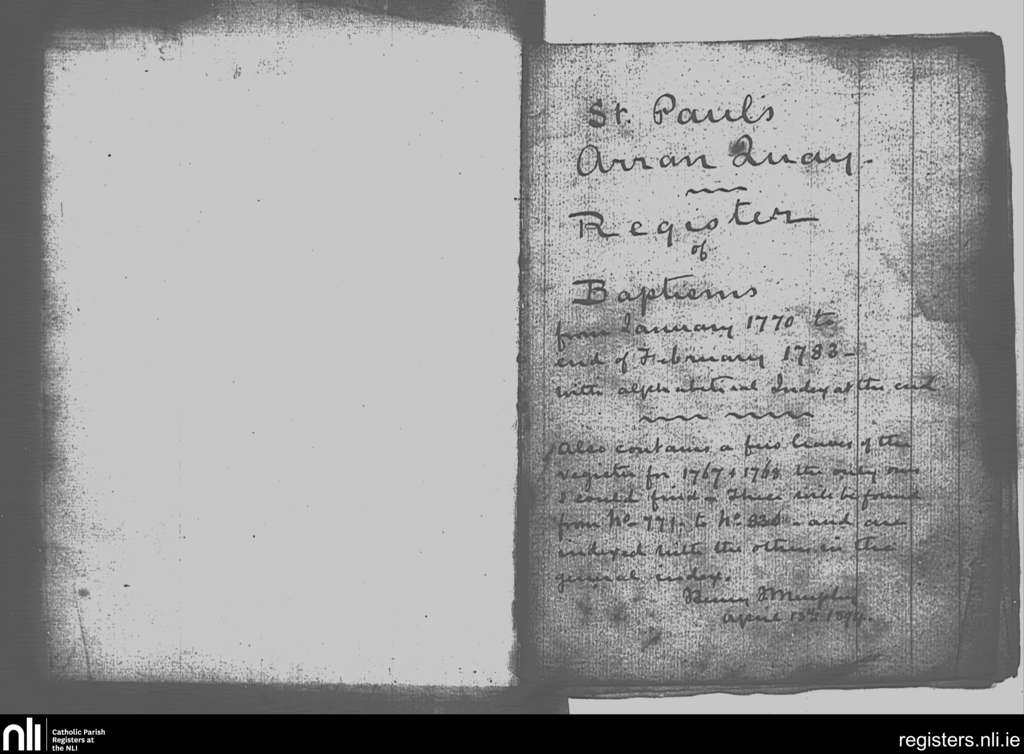 St. Paul's
Arran Quay.
Register
of
Baptisms
from January 1770 to
end of February 1783 -
with alphabetical Index at the end
Also contains a few leaves of the
register for 1767 & 1768 the only ones
I could find - These will be found
from No. 771 - to No. - and are
indexed with the others in the
general index.
Murphy
April
nli
Catholic Parish
Registers at
the NLI
registers.nli.ie